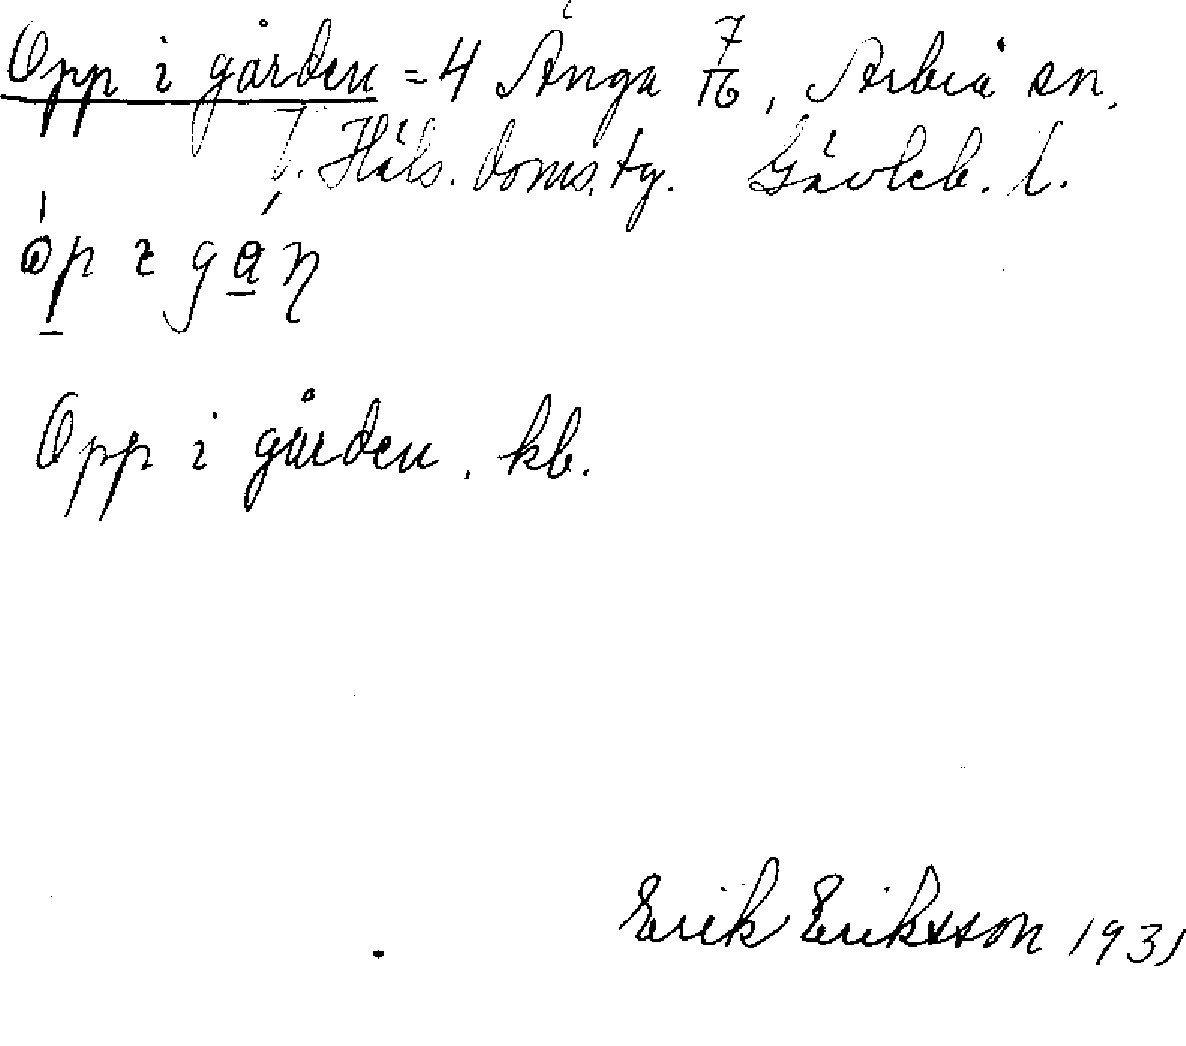 Opp i gården = 4 Änga 7/16, Arbrå sn.
V. Häls. doms. ty. Gävleb. l.
Opp i gården, kb.
Erik Eriksson 1931